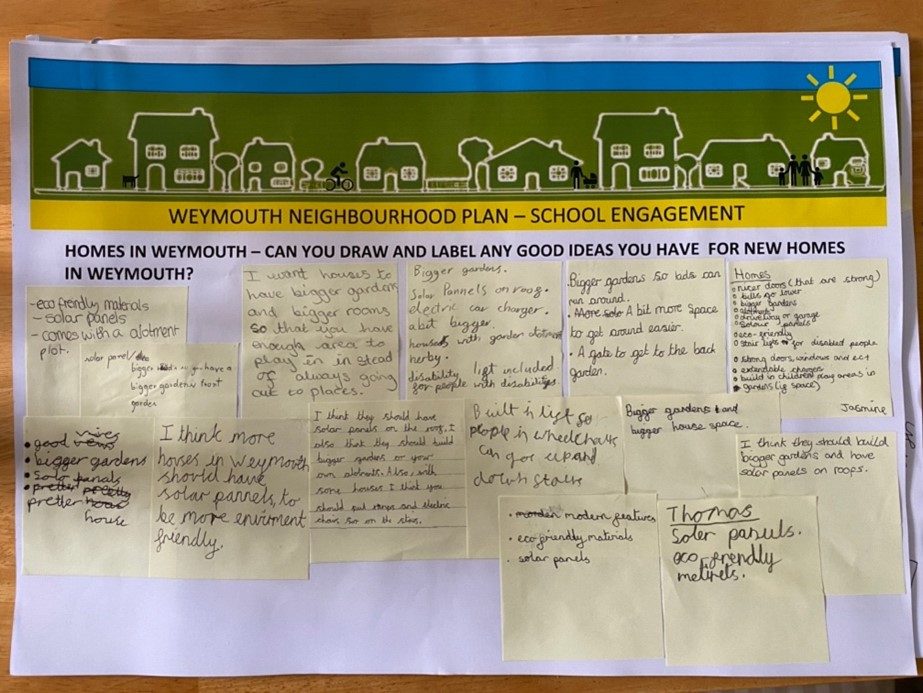 WEYMOUTH NEIGHBOURHOOD PLAN – SCHOOL ENGAGEMENT
HOMES IN WEYMOUTH – CAN YOU DRAW AND LABEL ANY GOOD IDEAS YOU HAVE FOR NEW HOMES
IN WEYMOUTH?
-eco friendly materials
- solar panels
- comes with a alotment
plot.
solar panels
bigger you have a
bigger garden front
garden
I want houses to
have bigger gardens
and bigger rooms
so that you have
enough area to
play in in stead
of always going
out to places.
Bigger gardens.
Solar Pannels on roog.
electric car charger.
abit bigger.
houses with garden
nerby.
disability lift included
for people with disabilitys.
Bigger gardens so kids can
run around.
• A bit more space
to get around easier.
• A gate to get to the back
garden.
Homes
nicer doors (that are strong)
bills go lower
bigger gardens
alotments
driveling or garage
Solour panels
eco-friendly
Stair lift for disabled people
strong doors, windows and ect
extendable chargers
build in children play areas in
gardens (ig space)
Jasmine
• good views
• bigger gardens
• Solar panals
pretter
house
I think more
houses in Weymouth
should have
solar pannels, to
be more envirment
friendly.
I think they should have
solar panels on the roof, I
also think they should build
bigger gardens or your
own alotments. Also, with
some houses I think you
should put ramps and electric
chairs for on the stairs.
Built in lift so
people in wheelchairs
can go up and
down stairs
Bigger gardens and
bigger house space.
I think they should build
bigger gardens and have
solar panels on roofs.
• modern features
• eco friendly materials
• solar panels
Thomas
Soler panuls.
eco friendly
metirels.